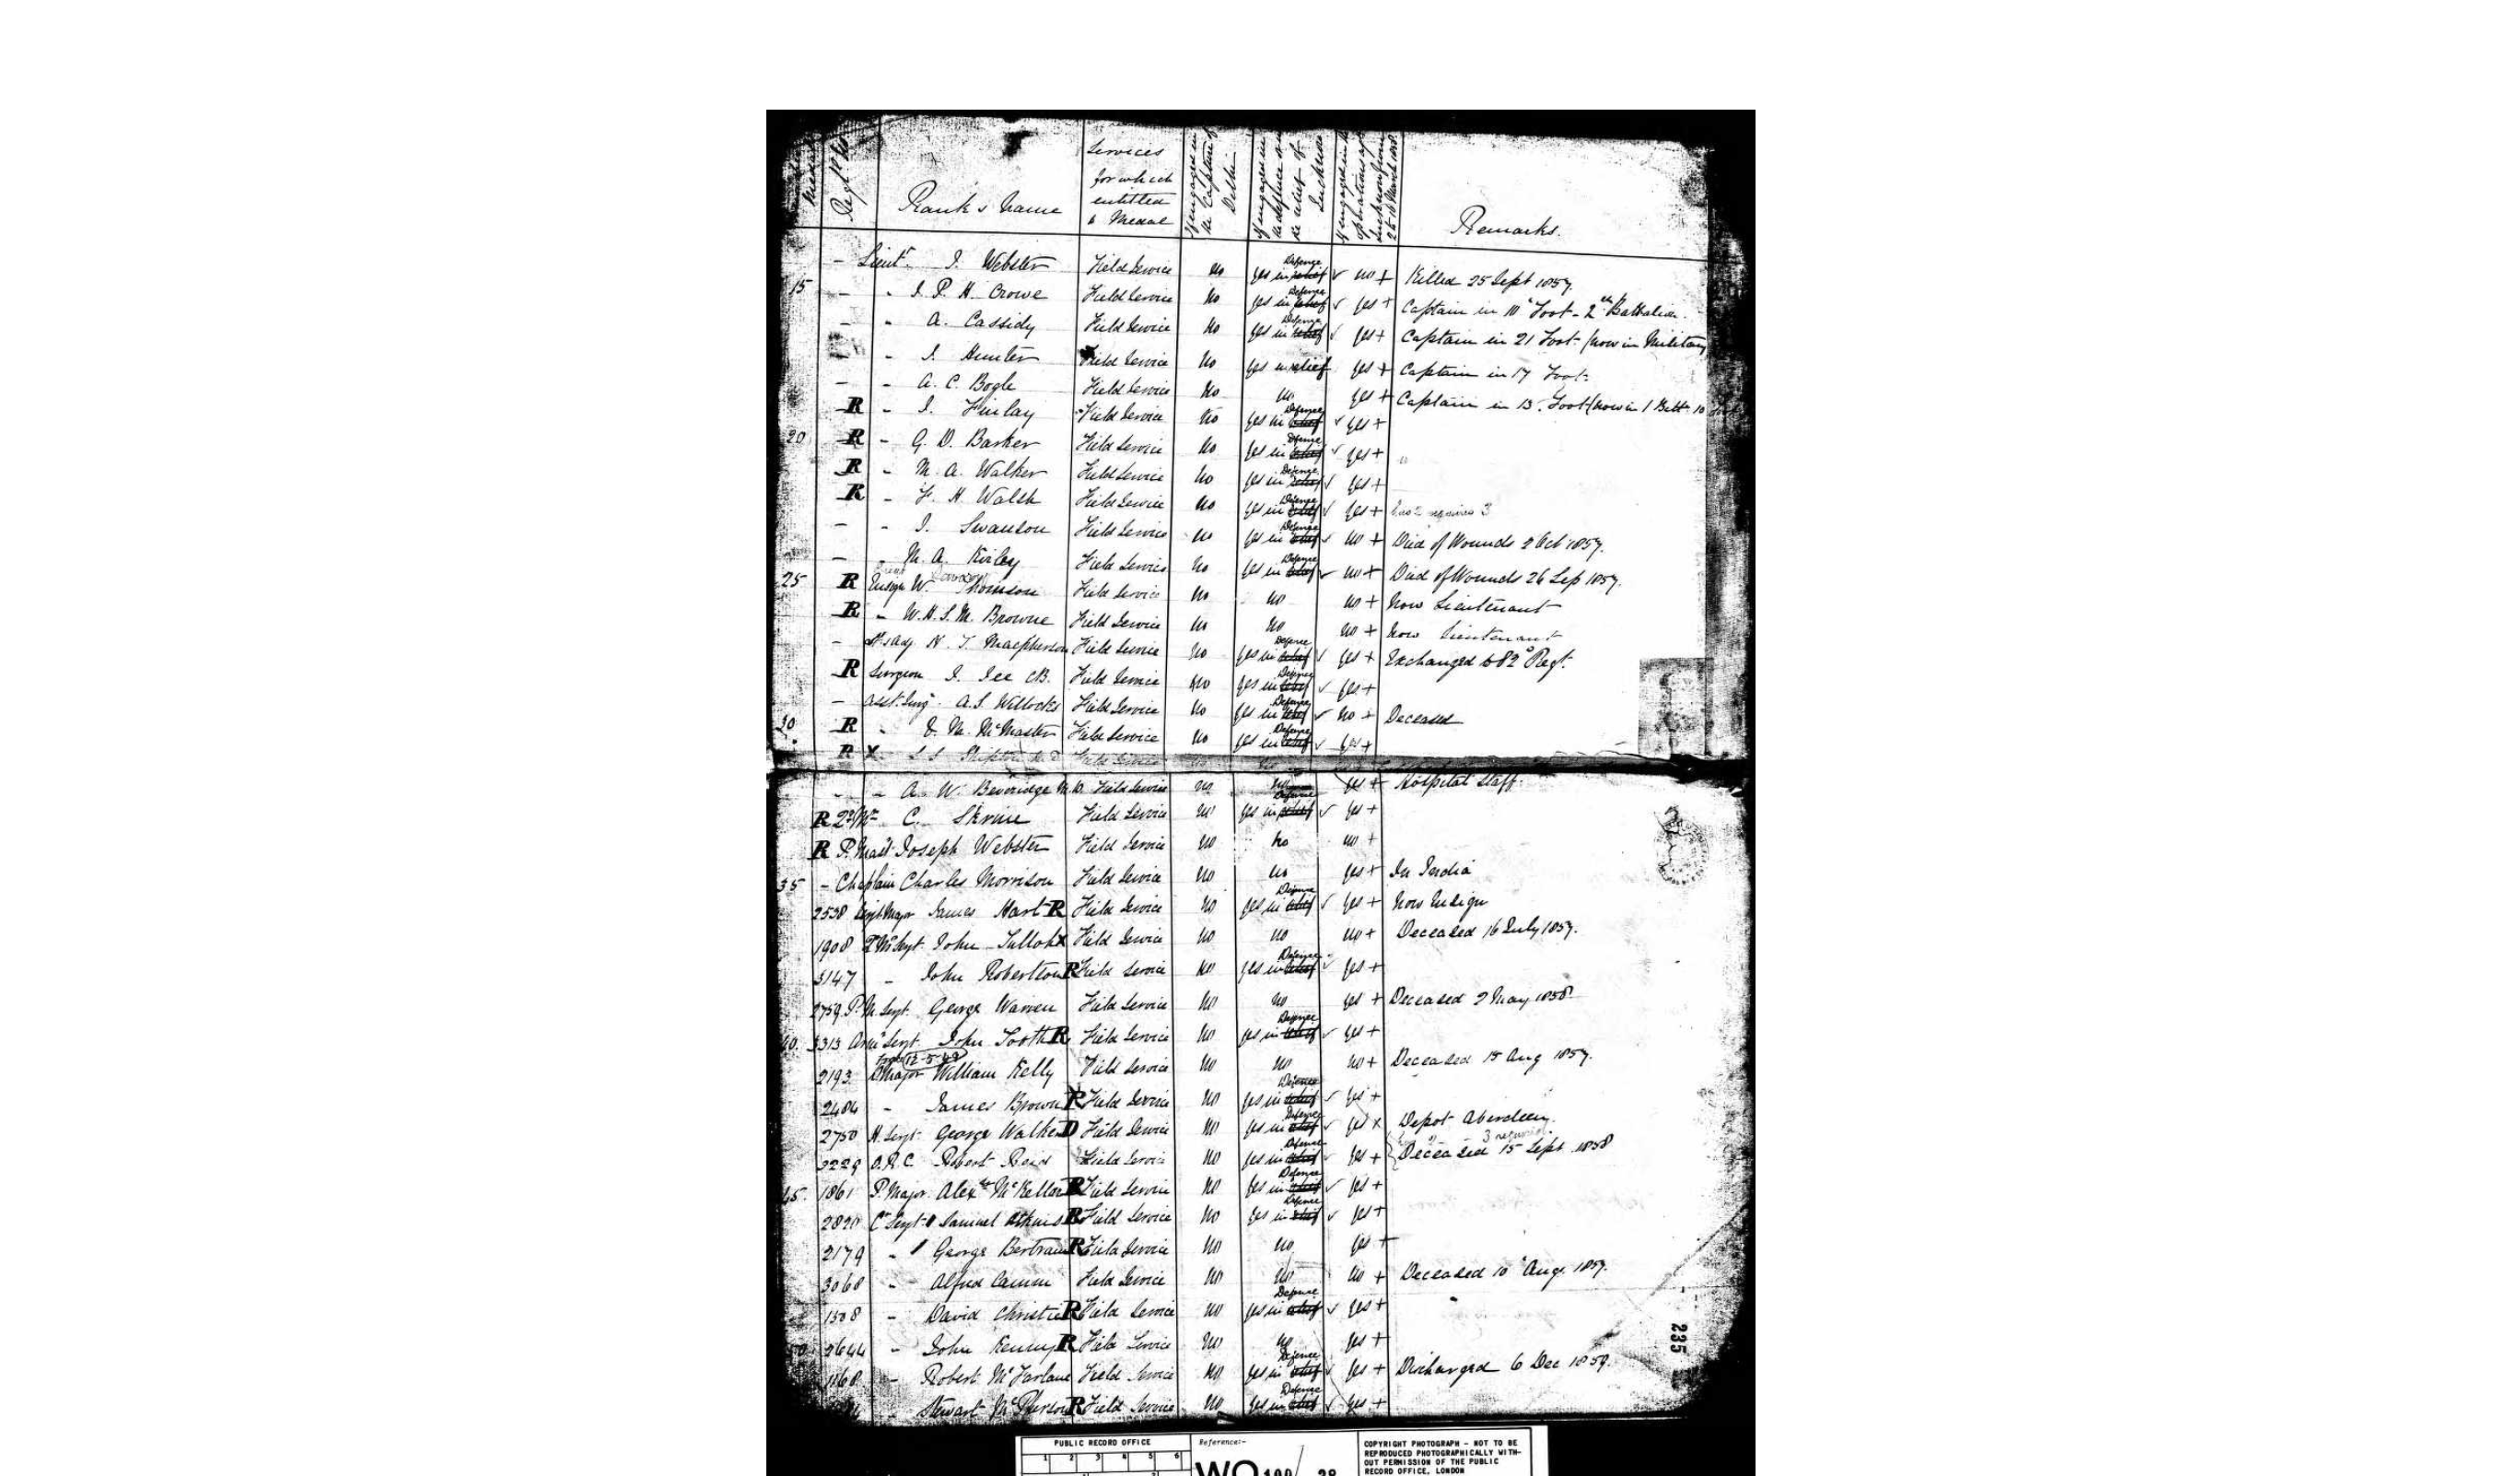 Regtl No
Rank & Name
Services for which entitled to Medal
If engaged in the Capture of Delhi
If engaged in the defence or in the relief of Lucknow
If engaged in operations Lucknow from 2 to 16 March 1858
Remarks.
- Lieut. J. Webster Field Service No Yes in relief Defence ✓ no + Killed 25 Sept 1857.
15 - " J. P. H. Crowe Field Service No Yes in relief Defence ✓ yes + Captain in 10th Foot - 2nd Battalion.
- " A. Cassidy Field Service No Yes in relief Defence ✓ yes + Captain in 21 Foot (now in Military
- " J. Hunter Field Service No Yes in relief yes + Captain in 17 Foot.
- " A. C. Bogle Field Service No No yes + Captain in 13. Foot (now in 1 Batt. 10 Foot
R " J. Finlay Field Service No Yes in relief Defence ✓ yes +
20 R " G. D. Barker Field Service No Yes in relief Defence ✓ yes +
R " M. A. Walker Field Service No Yes in relief Defence ✓ yes +
R " F. H. Walsh Field Service No Yes in relief Defence ✓ yes + has 2 requires 3
- " J. Swanson Field Service No Yes in relief Defence ✓ no + Died of Wounds 2 Oct 1857.
- M. A. Kirby Field Service No Yes in relief Defence ✓ no + Died of Wounds 26 Sep 1857.
25 R Ensign W. Thomson Field Service No No no + Now Lieutenant
R " W. H. S. M. Browne Field Service No No no + Now Lieutenant
- Lt & Adj. H. T. Macpherson Field Service No Yes in relief Defence ✓ yes + Exchanged to 82d Regt.
R Surgeon J. Jee CB. Field Service No Yes in relief Defence ✓ yes +
- Asst. Surgn. A. S. Willocks Field Service No Yes in relief Defence ✓ no + Deceased
30 R " V. M. McMaster Field Service No Yes in relief Defence ✓ yes +
R X Field Service
- " A. W. Beveridge M.D. Field Service No No yes + Hospital Staff.
R Qr Mr C. Skrine Field Service No Yes in relief Defence ✓ yes +
R P. Mast. Joseph Webster Field Service No No no +
35 - Chaplain Charles Morrison Field Service No No yes + In India
2538 Sergt Major James Hart R Field Service No Yes in relief Defence ✓ yes + Now Ensign
1908 Q. M. Sergt. John Tulloh X Field Service No No no + Deceased 16 July 1857.
3147 " John Robertson R Field Service No Yes in relief Defence ✓ yes +
2759 P. M. Sergt. George Warren Field Service No No yes + Deceased 2 May 1858.
40. 3313 Arm. Sergt. John Tooth R Field Service No Yes in relief Defence ✓ yes +
12-5-49
2193. D Major William Kelly Field Service No No no + Deceased 15 Aug 1857.
2484 " James Brown R Field Service No Yes in relief Defence ✓ yes +
2750 H. Sergt. George Walker D Field Service No Yes in relief Defence ✓ yes x Depot Aberdeen.
2229 O.R.C. Robert Reid Field Service No Yes in relief Defence yes + Deceased 15 Sept. 1858
45. 1861 P. Major. Alexr McKellar R Field Service No Yes in relief Defence ✓ yes +
2820 Cr Sergt. Samuel Atkins R Field Service No Yes in relief Defence ✓ yes +
2179 " George Bertram R Field Service No No yes +
3068 " Alfred Camm Field Service No No no + Deceased 10 Aug. 1857.
1508 " David Christie R Field Service No Yes in relief Defence ✓ yes +
50. 2644 " John Kenny R Field Service No No yes +
1168 " Robert McFarlane Field Service No Yes in relief Defence ✓ yes + Discharged 6 Dec 1859.
Stewart McPherson R Field Service No Yes in relief Defence ✓ yes +
235
PUBLIC RECORD OFFICE
1 2 3 4 5 6
Reference:-
WO 100/38
COPYRIGHT PHOTOGRAPH - NOT TO BE
REPRODUCED PHOTOGRAPHICALLY WITH-
OUT PERMISSION OF THE PUBLIC
RECORD OFFICE, LONDON